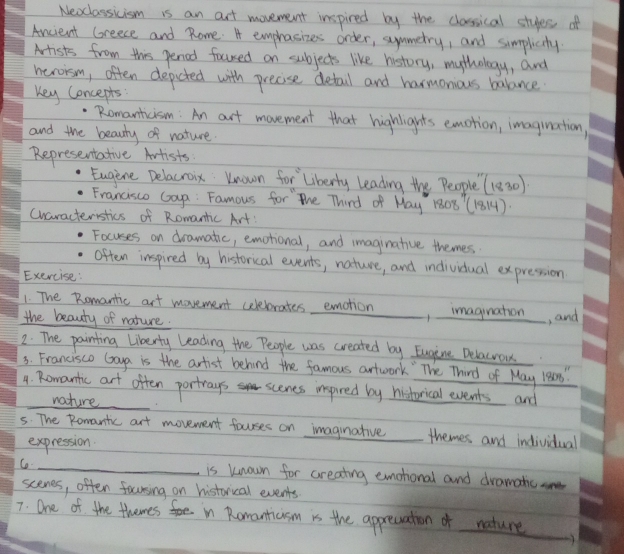 Neoclassicism is an art movement inspired by the classical styles of
Ancient Greece and Rome. It emphasizes order, symmetry, and simplicity.
Artists from this period focused on subjects like history, mythology, and
heroism, often depicted with precise detail and harmonious balance.
Key Concepts:
• Romanticism: An art movement that highlights emotion, imagination,
and the beauty of nature.
Representative Artists:
• Eugène Delacroix: Known for "Liberty Leading the People" (1830)
• Francisco Goya: Famous for "The Third of May 1808" (1814).
Characteristics of Romantic Art:
• Focuses on dramatic, emotional, and imaginative themes.
• Often inspired by historical events, nature, and individual expression.
Exercise:
1. The Romantic art movement celebrates emotion, imagination, and
the beauty of nature.
2. The painting Liberty Leading the People was created by Eugène Delacroix.
3. Francisco Goya is the artist behind the famous artwork "The Third of May 1808".
4. Romantic art often portrays scenes inspired by historical events and
nature.
5. The Romantic art movement focuses on imaginative themes and individual
expression.
6. ____________ is known for creating emotional and dramatic
scenes, often focusing on historical events.
7. One of the themes in Romanticism is the appreciation of nature,